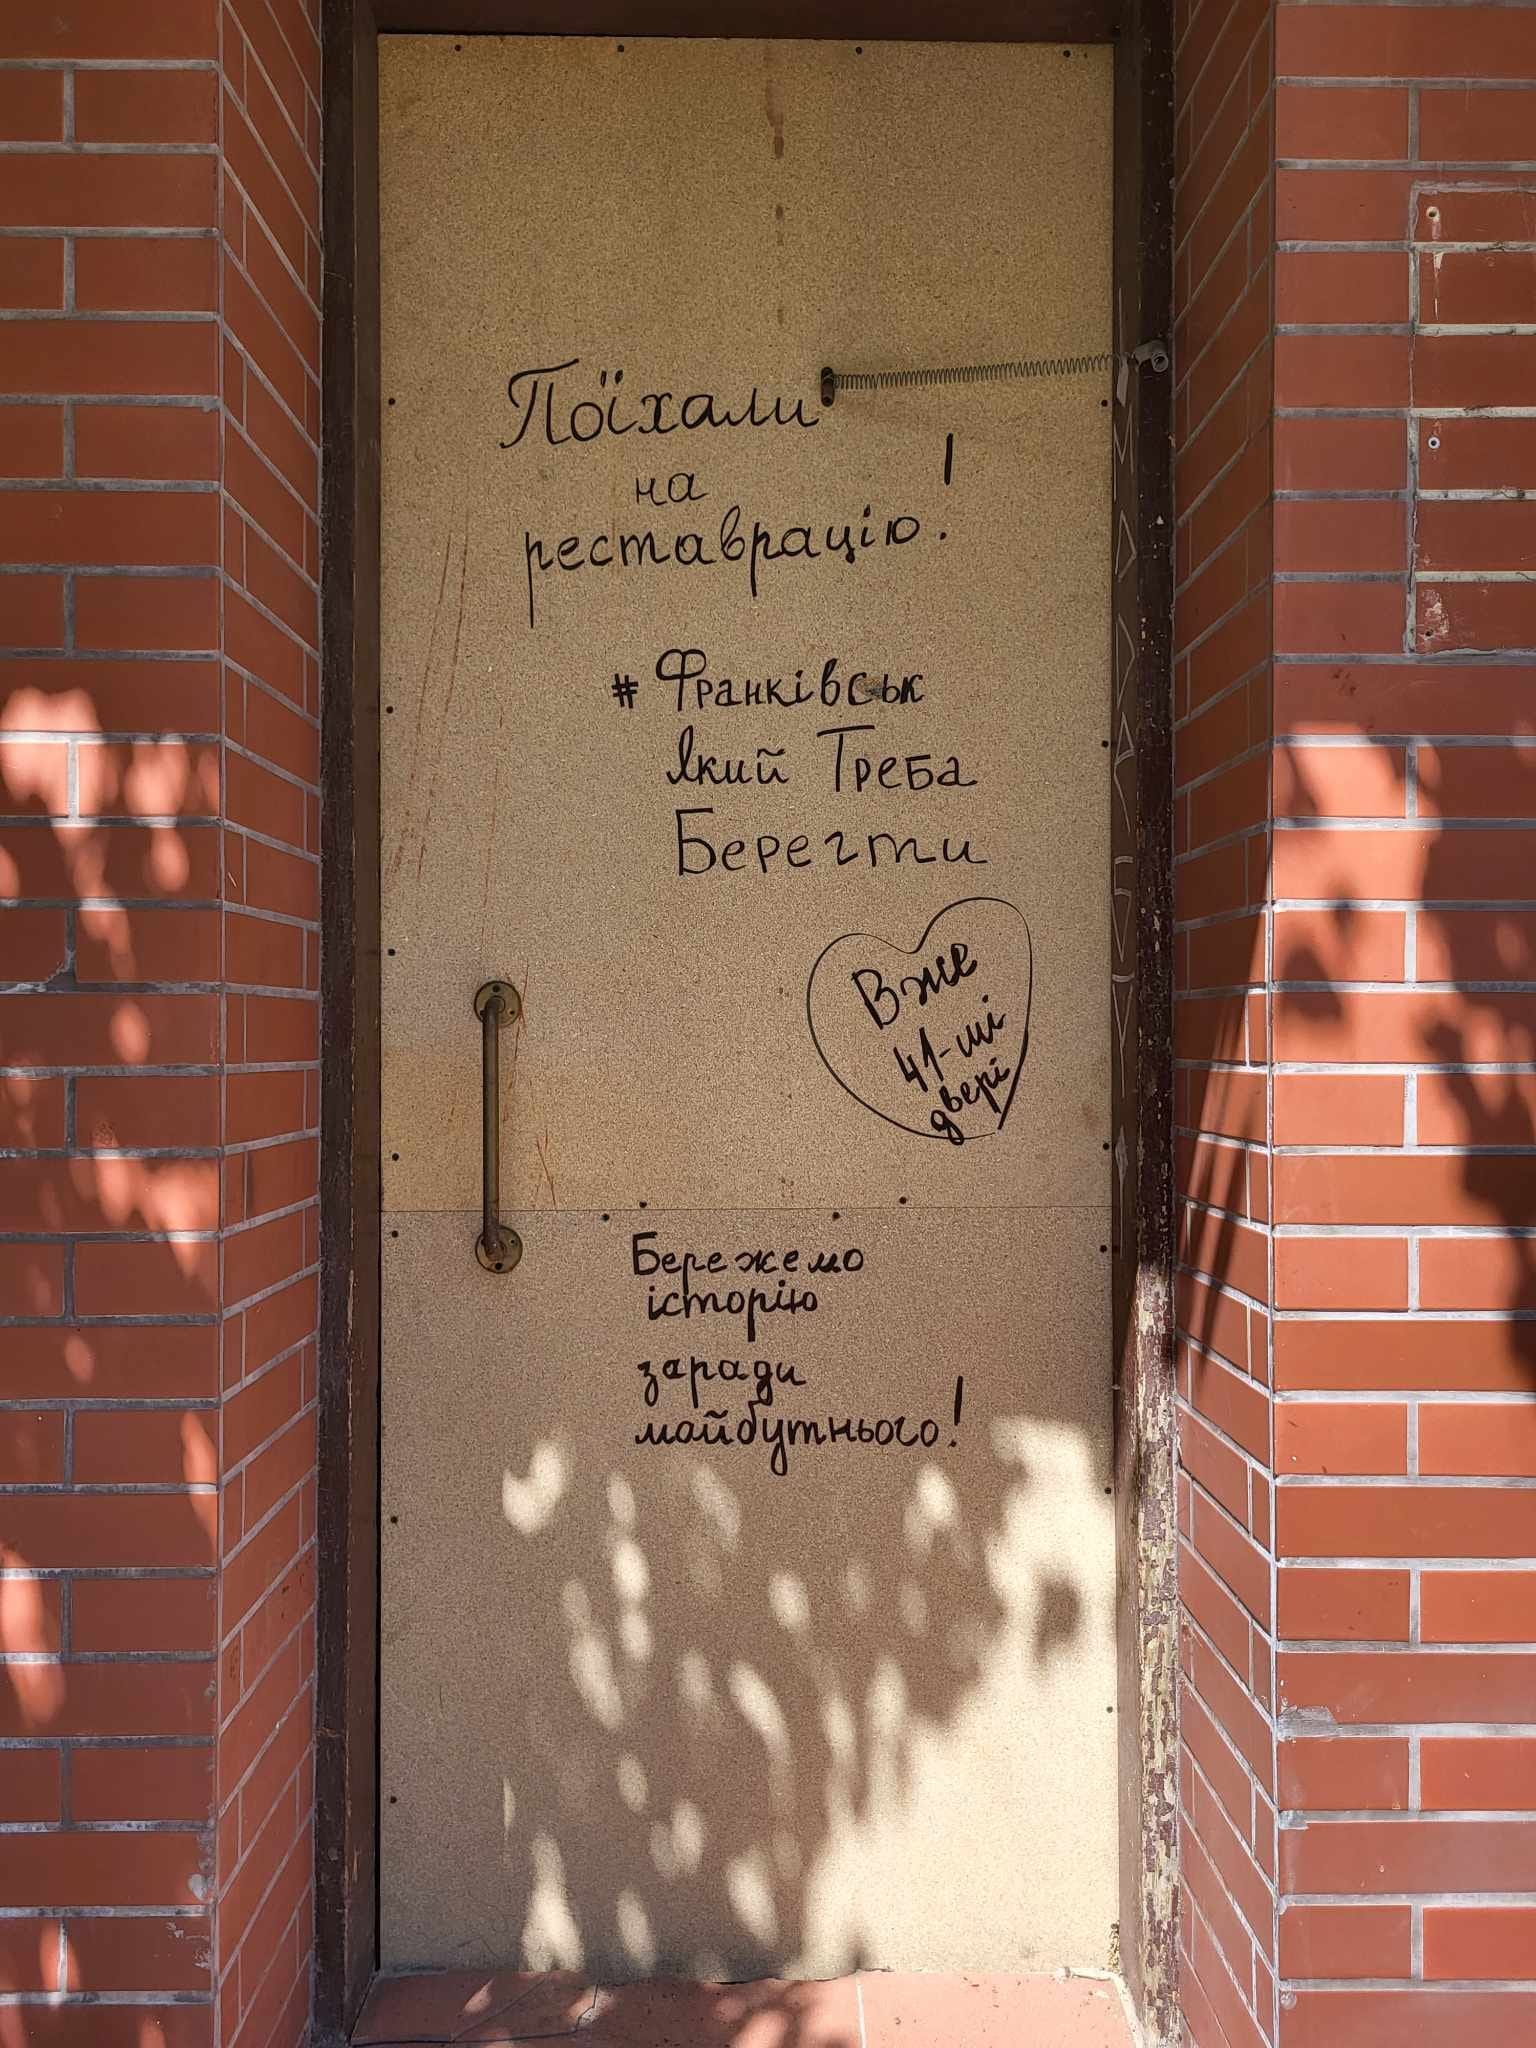 Поїхали
на
реставрацію!
# Франківськ
Який Треба
Берегти
Вже
41-ші
двері
Бережемо
історію
заради
майбутнього!